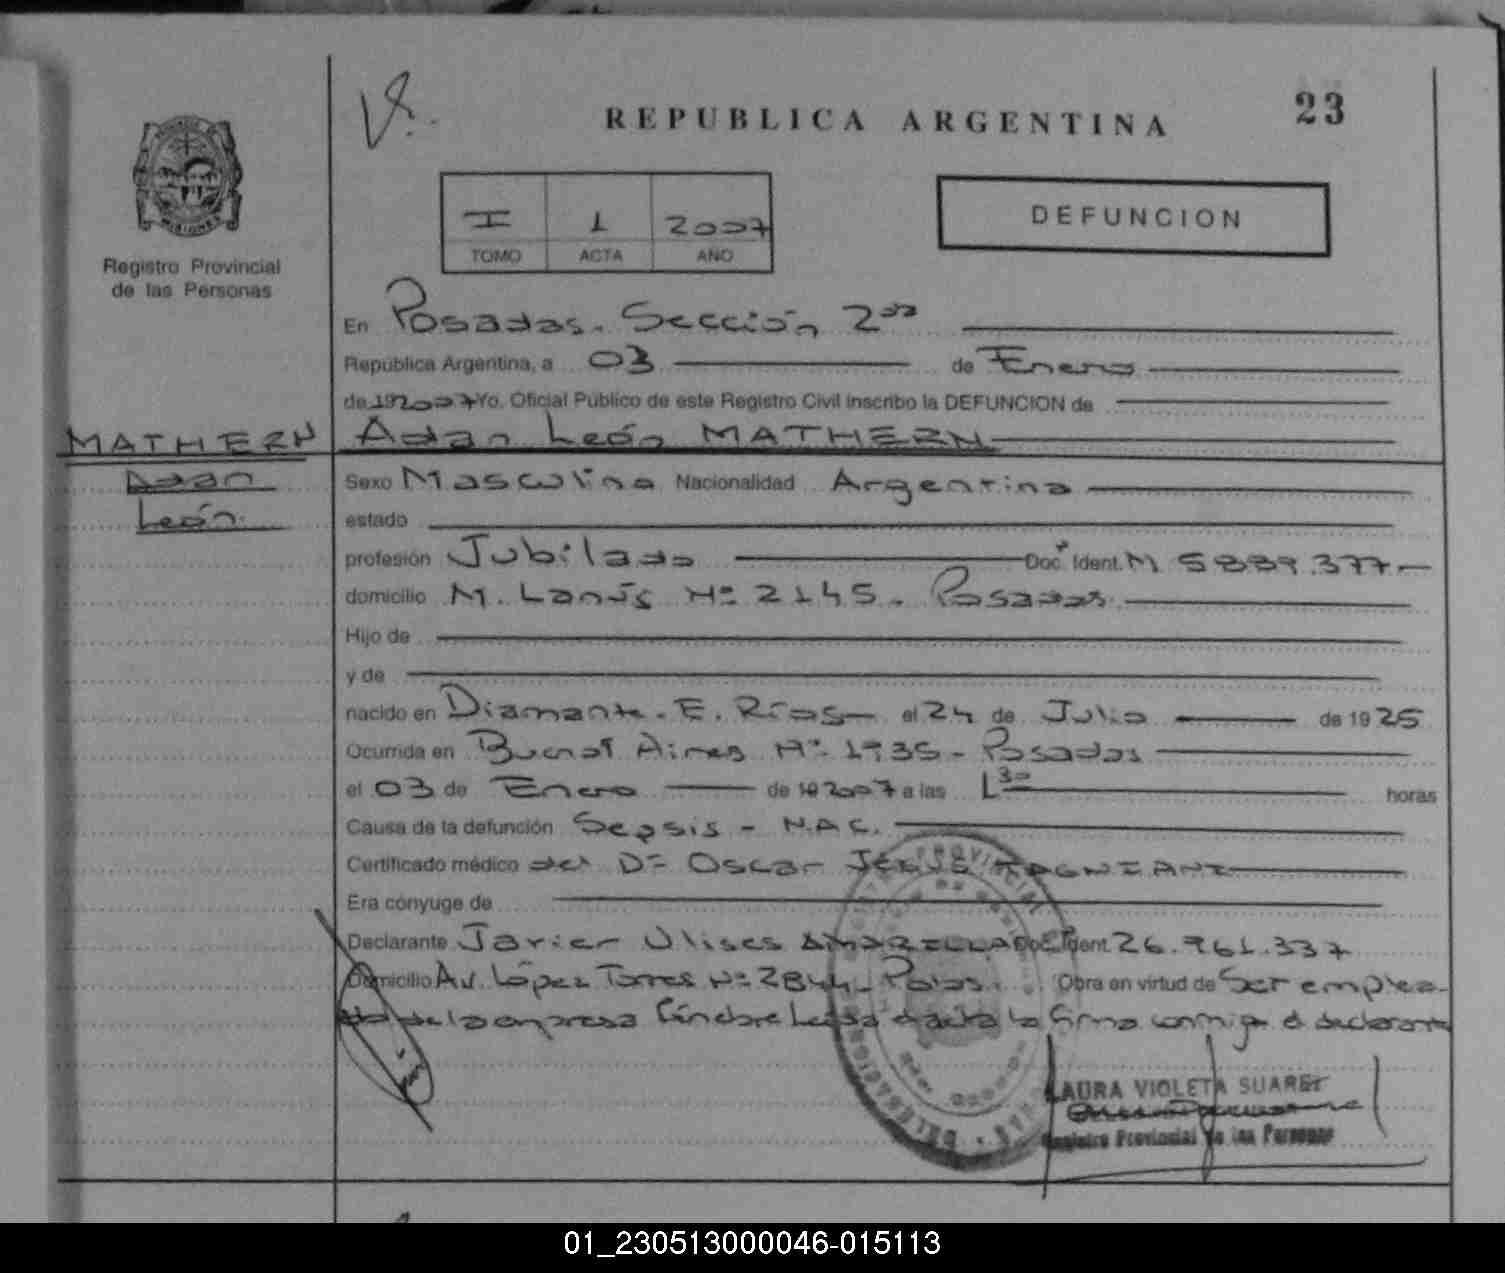 REPUBLICA ARGENTINA
23
I 1 2007
TOMO ACTA AÑO
DEFUNCION
Registro Provincial
de las Personas
En Posadas. Sección 2da
República Argentina, a 03 de Enero
de 19 2007 Yo, Oficial Público de este Registro Civil inscribo la DEFUNCION de
MATHERN
Adan
León
Adan León MATHERN
Sexo Masculino Nacionalidad Argentina
estado
profesión Jubilado Doc. Ident. M 5889.377
domicilio M. Lanús Nº 2145. Posadas
Hijo de
y de
nacido en Diamante. E. Ríos el 24 de Julio de 1925
Ocurrida en Buenos Aires Nº 1935 - Posadas
el 03 de Enero de 19 2007 a las 1 30 horas
Causa de la defunción Sepsis - N.A.C.
Certificado médico del Dr Oscar Jesús
Era cónyuge de
Declarante Javier Ulises AMARILLA Doc. Ident. 26.961.337
Domicilio Av. López Torres Nº 2844 - Pdas. Obra en virtud de Ser emplea-
do de la empresa fúnebre la firma conmigo el declarante
LAURA VIOLETA SUAREZ
Registro Provincial de las Personas
01_230513000046-015113